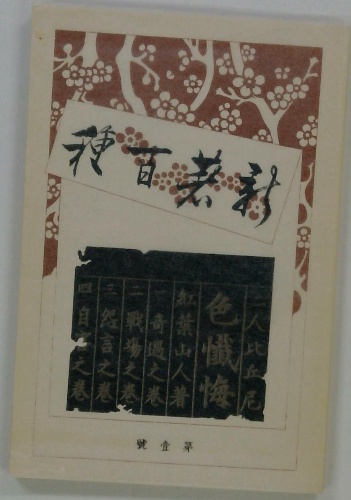 新著百種
二人比丘尼
色懺悔
紅葉山人著
一奇遇之巻
二戰場之巻
三怨言之巻
四自之巻
第壹號